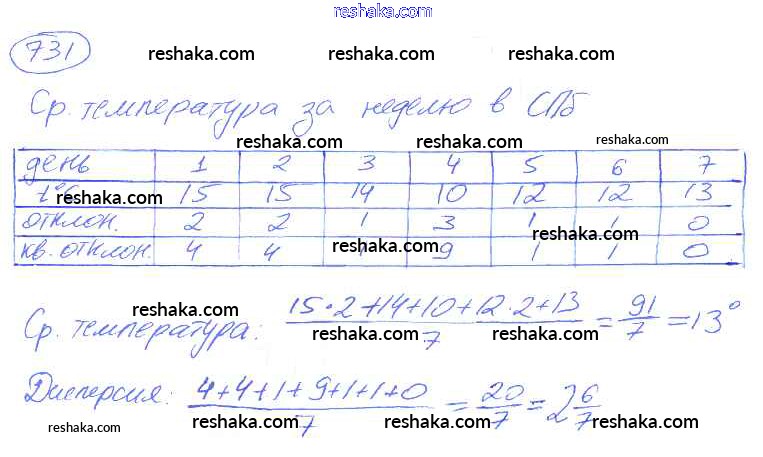 reshaka.com
731 reshaka.com reshaka.com
Ср. температура за неделю в СПб
reshaka.com reshaka.com reshaka.com
день 1 2 3 4 5 6 7
t°C 15 15 14 10 12 12 13
reshaka.com reshaka.com reshaka.com
отклон. 2 2 1 3 1 1 0
reshaka.com reshaka.com
кв. отклон. 4 4 1 9 1 1 0
reshaka.com reshaka.com
Ср. температура: (15·2+14+10+12·2+13)/7 = 91/7 = 13°
reshaka.com reshaka.com reshaka.com
reshaka.com reshaka.com
Дисперсия: (4+4+1+9+1+1+0)/7 = 20/7 = 2 6/7
reshaka.com reshaka.com reshaka.com reshaka.com